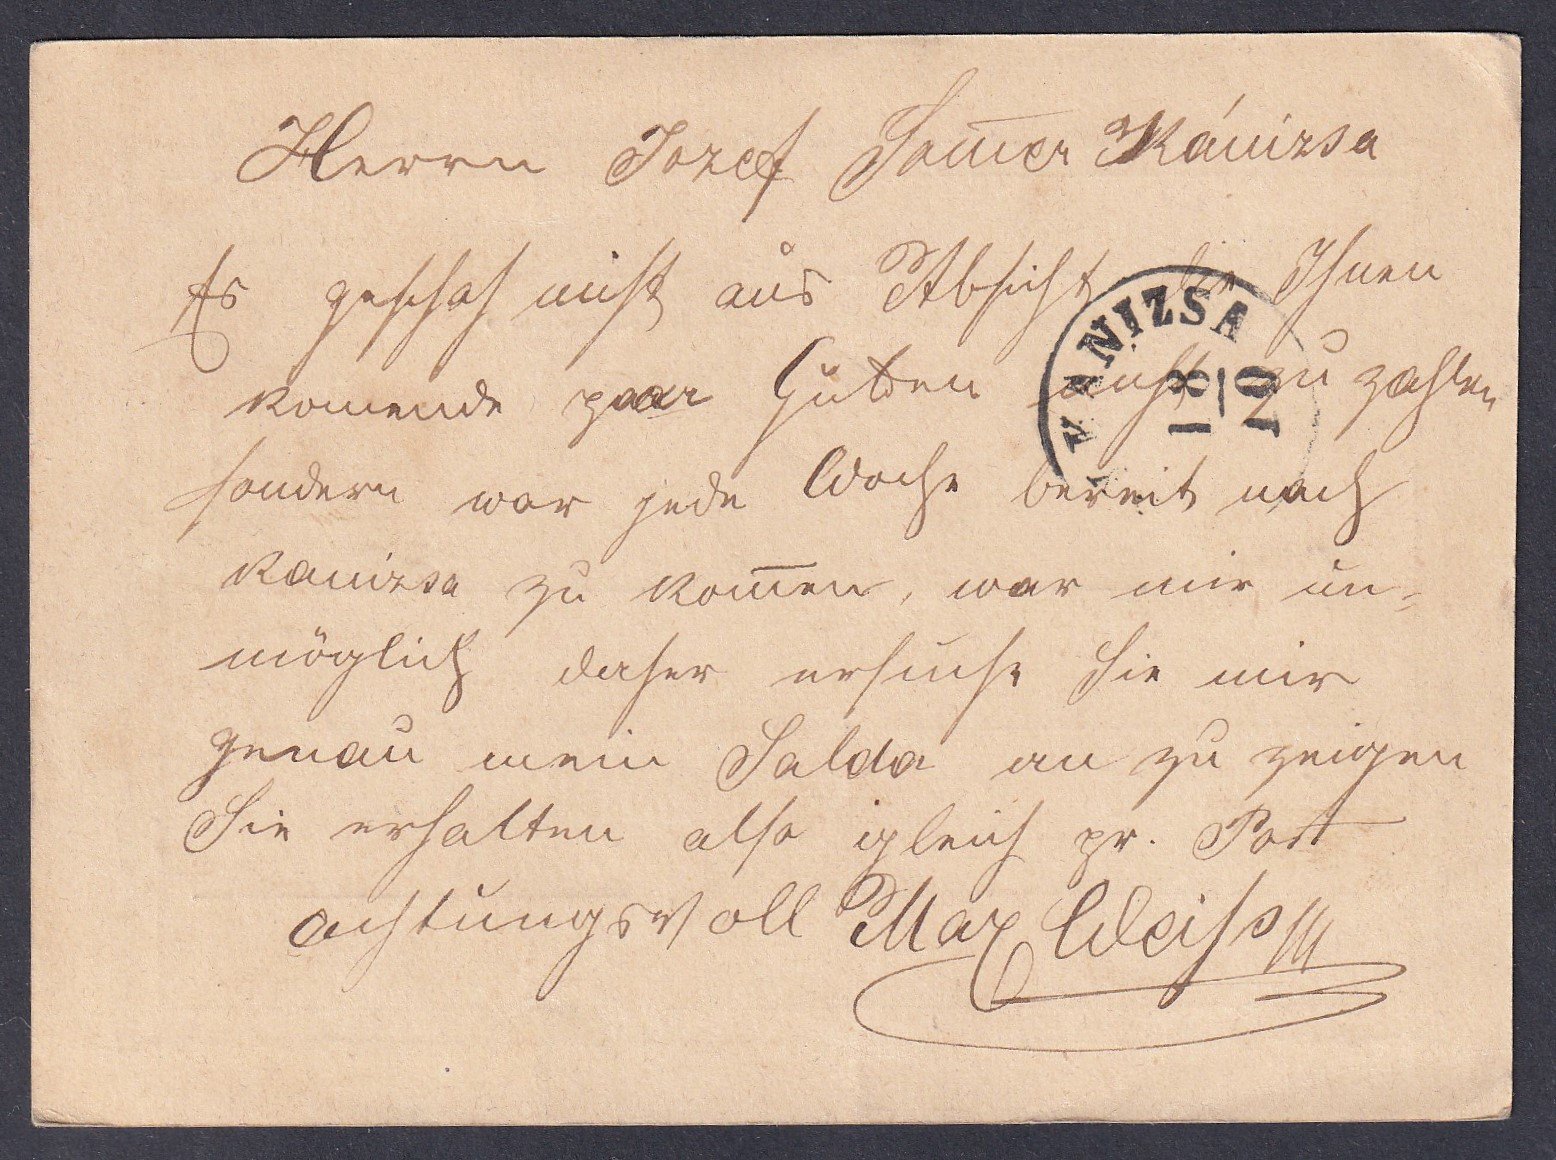 Herrn Jozef Som̅er Kánizsa
Es geschah nicht aus Absicht die Ihnen
komende paar Gulden nicht zu zahlen
sondern war jede Woche bereit nach
Kanizsa zu kom̅en, war mir un-
möglich daher ersuche Sie mir
genau mein Salda an zu zeigen
Sie erhalten also gleich pr. Post
achtungsvoll Max Weiss
KANIZSA
18
10